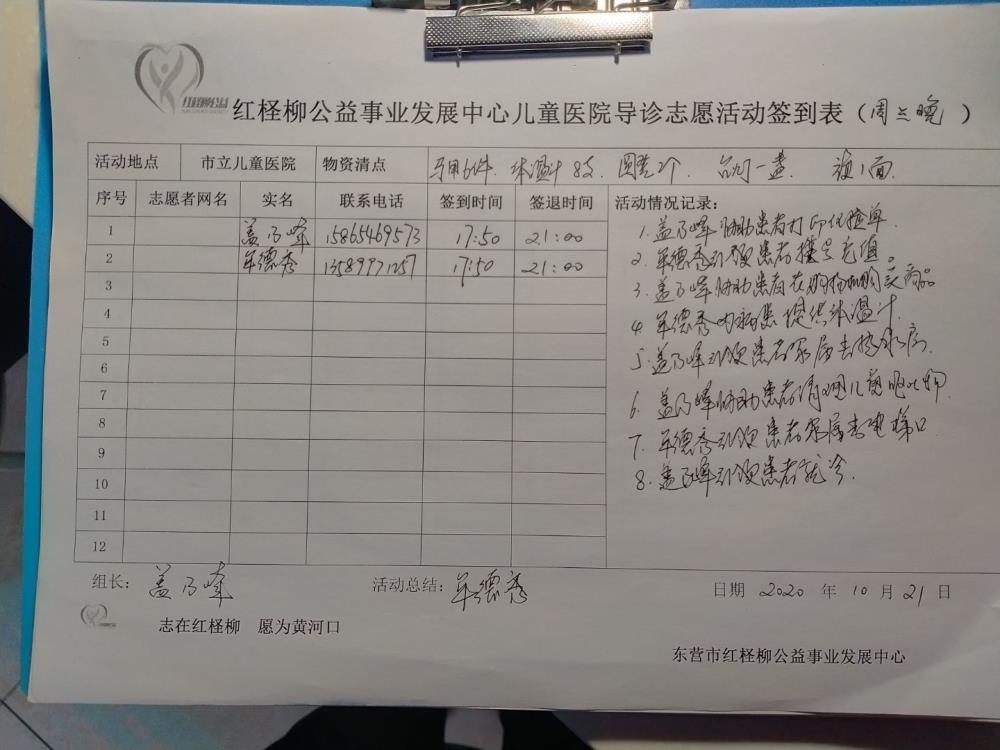 红柽柳公益事业发展中心儿童医院导诊志愿活动签到表（周三晚）
活动地点 市立儿童医院 物资清点 马甲6件 体温计8支 圆凳2个 台灯一盏 旗1面
序号 志愿者网名 实名 联系电话 签到时间 签退时间 活动情况记录：
1 盖乃峰 15865469573 17:50 21:00
2 牟德秀 13589971257 17:50 21:00
3
4
5
6
7
8
9
10
11
12
1. 盖乃峰协助患者打印化验单
2. 牟德秀引领患者挂号充值。
3. 盖乃峰协助患者在购物机购买商品
4. 牟德秀为患提供体温计.
5. 盖乃峰引领患者家属去接水房.
6. 盖乃峰协助患者清理儿童呕吐物
7. 牟德秀引领患者家属去电梯口
8. 盖乃峰引领患者就诊.
组长： 盖乃峰 活动总结： 牟德秀 日期 2020 年 10 月 21 日
志在红柽柳 愿为黄河口
东营市红柽柳公益事业发展中心